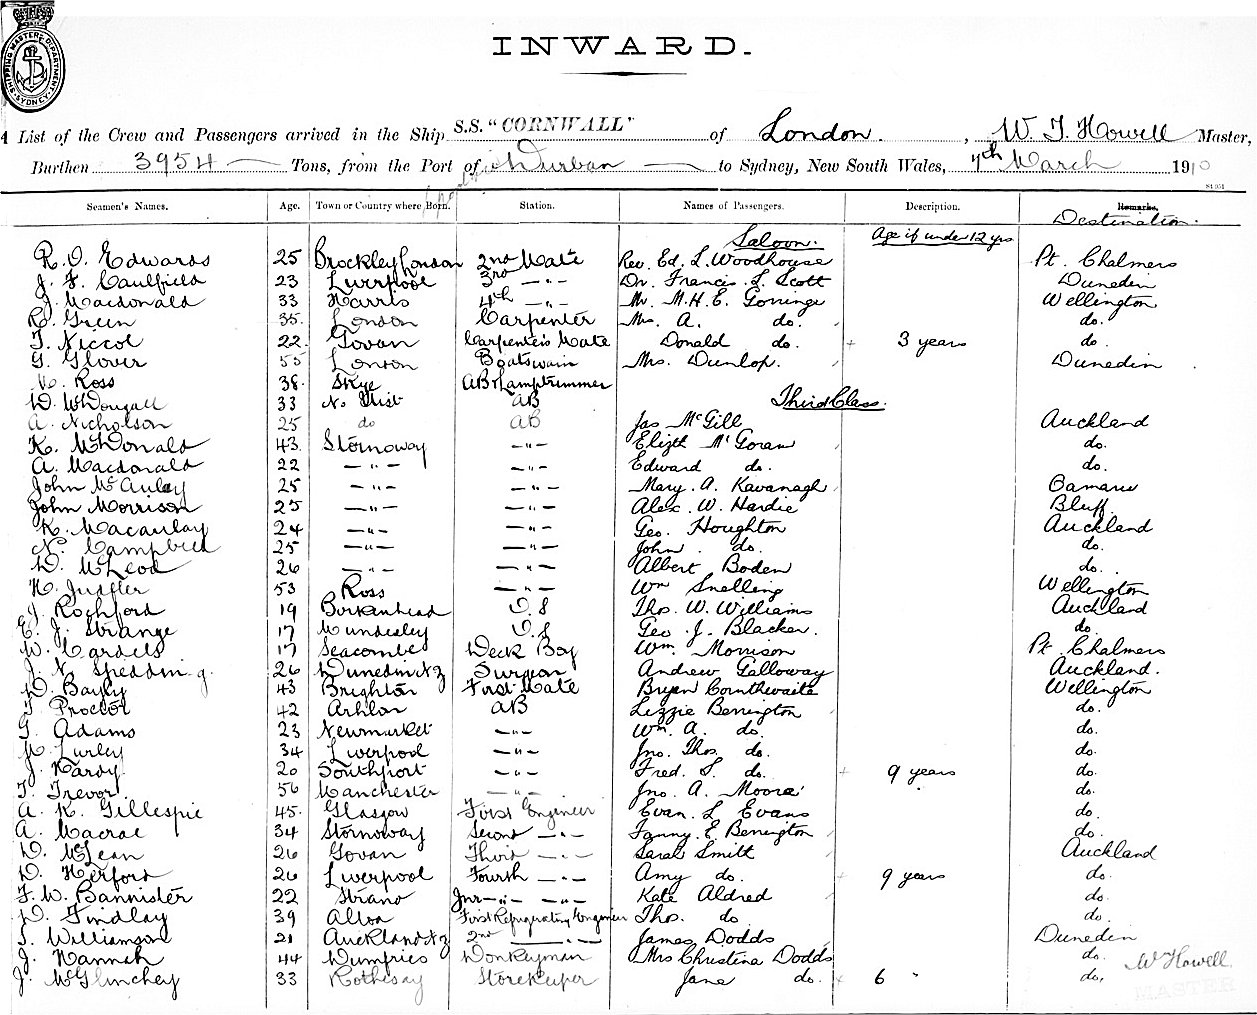 SHIPPING MASTERS DEPARTMENT SYDNEY
INWARD.
A List of the Crew and Passengers arrived in the Ship S.S. "CORNWALL" of London. , W. J. Howell Master,
Burthen 3954 Tons, from the Port of Durban to Sydney, New South Wales, 7th March 1910
Seamen's Names. Age. Town or Country where Born. Station. Names of Passengers. Description. Remarks.
Destination.
Saloon. Age if under 12 yrs
R. O. Edwards 25 Brockley London 2nd Mate Rev. Ed. L. Woodhouse Pt. Chalmers
J. F. Caulfield 23 Liverpool 3rd -"- Dr. Francis. L. Scott Dunedin
J. Macdonald 33 Harris 4th -"- Mr. M. H. E. Gorringe Wellington
R. Green 35. London Carpenter Mrs. A. do. do.
T. Niccol 22. Govan Carpenters Mate Donald do. + 3 years do.
G. Glover 55 London Boatswain Mrs. Dunlop. Dunedin
Ross 38. Skye AB & Lamptrimmer
D. McDougall 33 N. Uist AB Third Class.
A. Nicholson 25 do AB Jas McGill Auckland
K. McDonald 43. Stornoway -"- Elizth McGoran do.
A. Macdonald 22 -"- -"- Edward do. do.
John McAulay 25 -"- -"- Mary. A. Kavanagh Oamaru
John Morrison 25 -"- -"- Alex. W. Hardie Bluff.
K. Macaulay 24 -"- -"- Geo. Houghton Auckland
N. Campbell 25 -"- -"- John. do. do.
D. McLeod 26 -"- -"- Albert Boden do.
H. 53 Ross -"- Wm Snelling Wellington
J. Rochford 19 Birkenhead O.S Thos. W. Williams Auckland
E. J. Strange 17 Mundesley O.S Geo. J. Blacker. do
W. 17 Seacombe Deck Boy Wm. Morrison Pt. Chalmers
J. N. Spedding. 26 Dunedin NZ Surgeon Andrew Galloway Auckland.
D. 43 Brighton First Mate Bryen Cornthwaite Wellington
Proctor 42 AB Lizzie Benington do.
G. Adams 23 Newmarket -"- Wm. A. do. do.
34 Liverpool -"- Jno. Thos. do. do.
J. Hardy 20 Southport -"- Fred. S. do. + 9 years do.
T. Trevor 56 Manchester -"- Jno. A. Moore do.
A. K. Gillespie 45. Glasgow First Engineer Evan. L Evans do.
A. Macrae 34 Stornoway Second -"- Fanny. E. Benington do.
D. McLean 26 Govan Third -"- Sarah Smith Auckland
D. Herford 26 Liverpool Fourth -"- Amy do. 9 years do.
F. W. Bannister 22 Jnr -"- -"- Kate Aldred do.
D. Findlay 39 Alloa First Refrigerating Engineer Thos. do do.
Williamson 21 Auckland NZ 2nd James Dodds Dunedin
J. Hannah 44 Dumfries Donkeyman Mrs Christina Dodds do.
J. McGlinchey 33 Rothesay Storekeeper Jane do. + 6 " do.
W Howell
MASTER